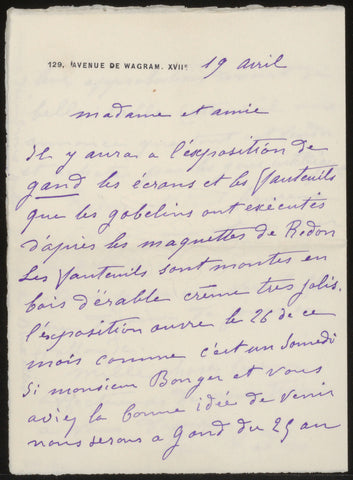 129, AVENUE DE WAGRAM. XVIIᵉ
19 avril
madame et amie
Il y aura a l'exposition de
gand les écrans et les fauteuils
que les gobelins ont exécutés
d'apres les maquettes de Redon
Les fauteuils sont montes en
bois d'érable crême tres jolis.
l'exposition ouvre le 26 de ce
mois comme c'est un Samedi
Si monsieur Bonger et vous
aviez la bonne idée de venir
nous serons a Gand du 25 au